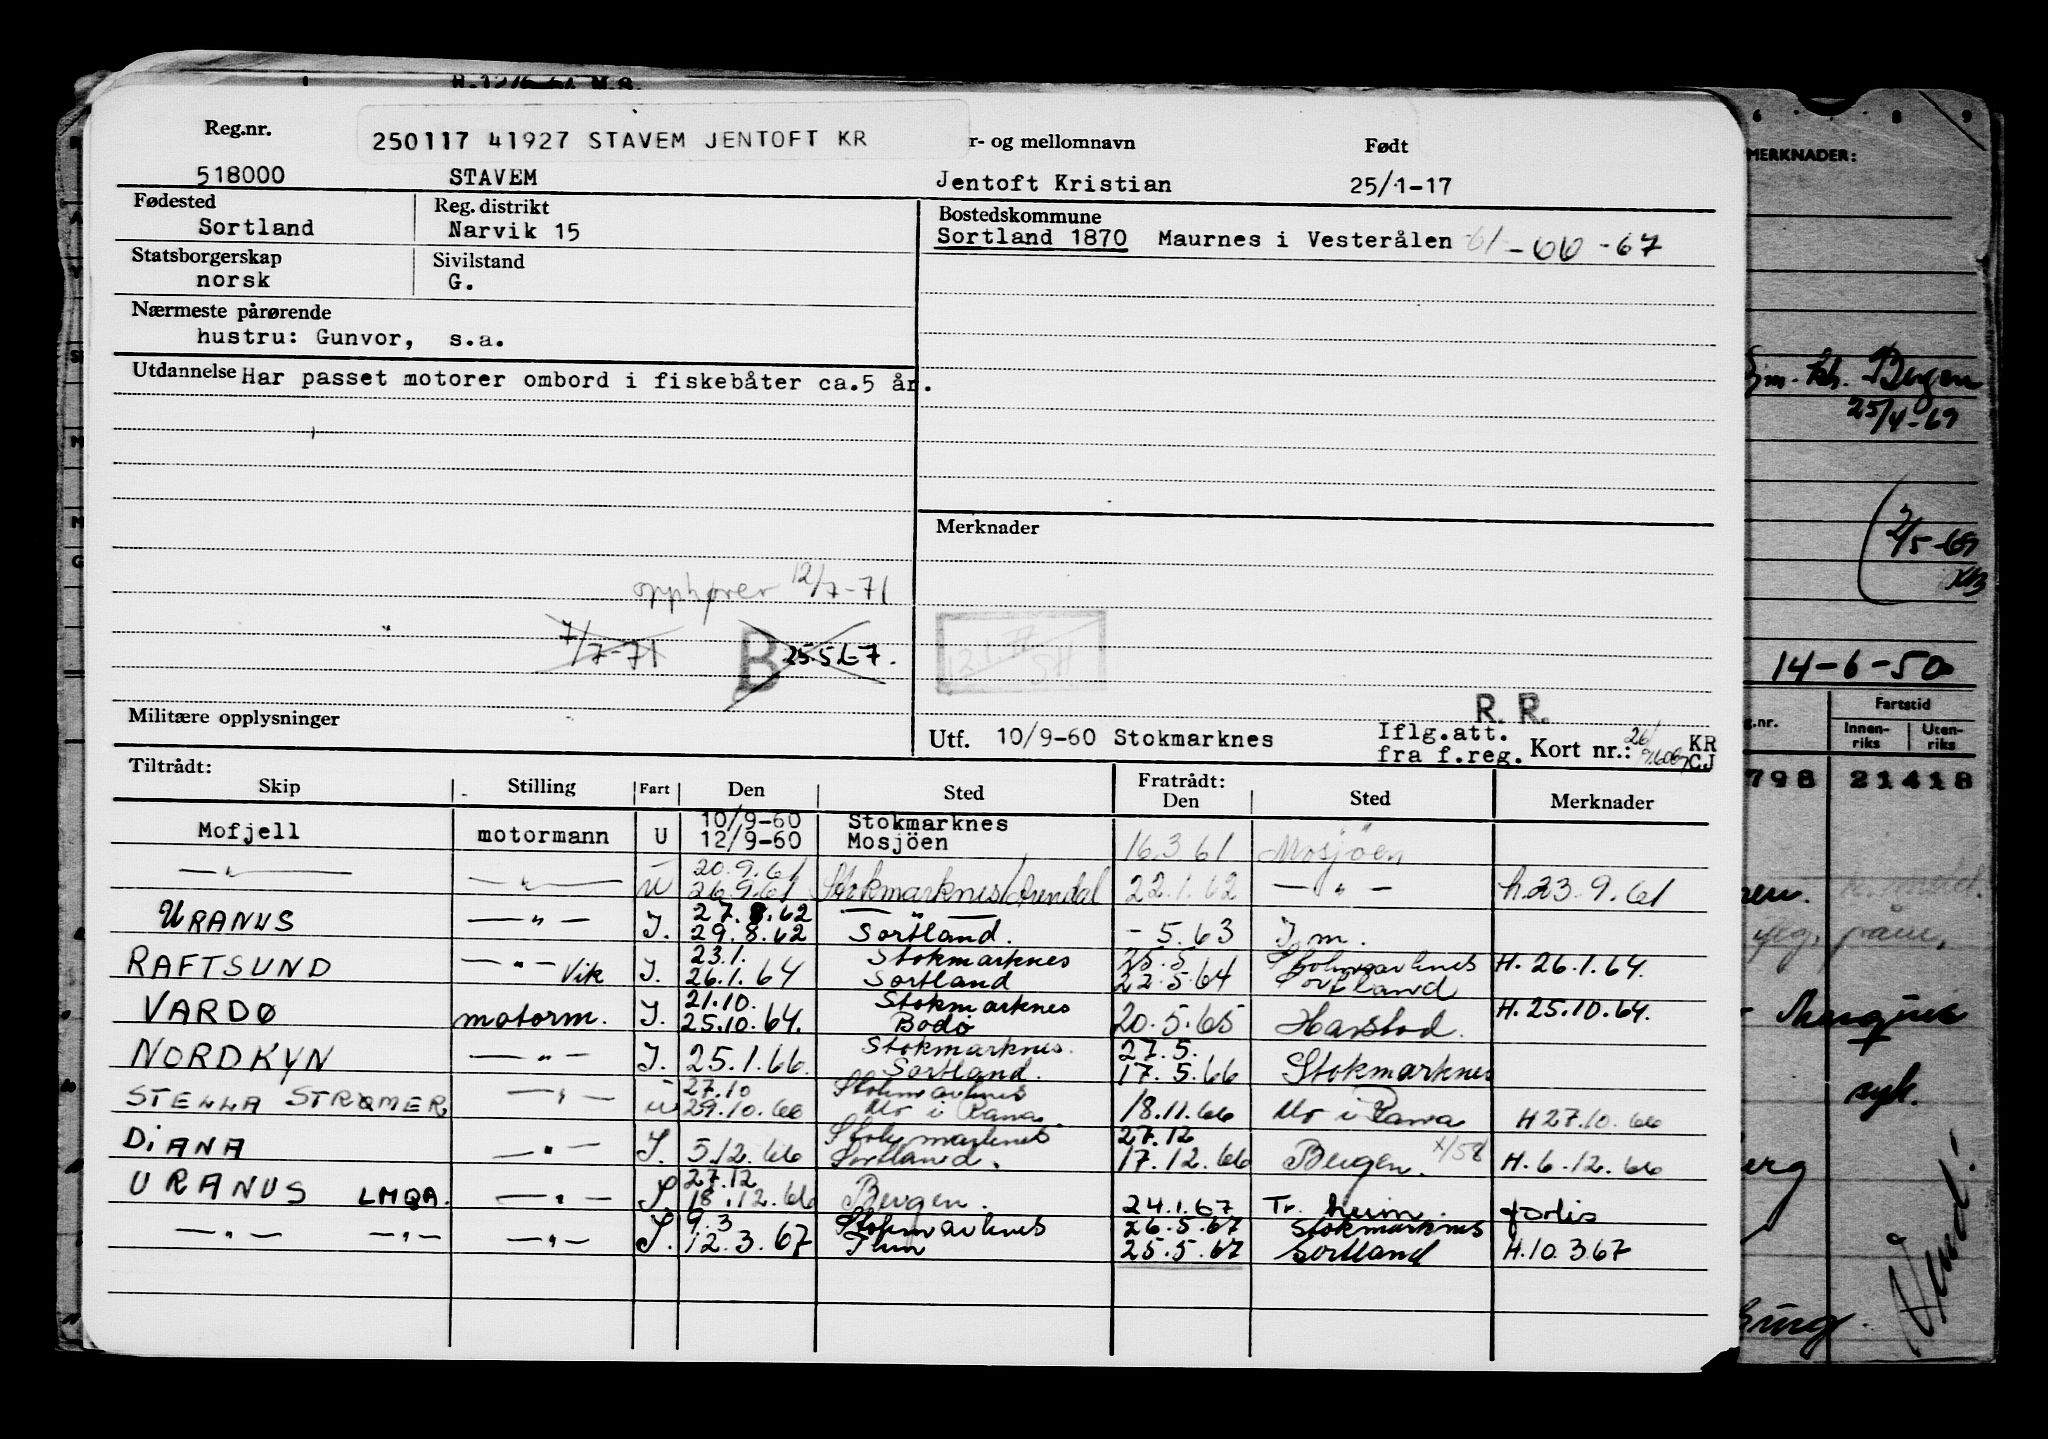 Reg.nr.
250117 41927 STAVEM JENTOFT KR
r- og mellomnavn
Født
518000 STAVEM Jentoft Kristian 25/1-17
Fødested
Sortland
Reg. distrikt
Narvik 15
Bostedskommune
Sortland 1870 Maurnes i Vesterålen -61 -66 -67
Statsborgerskap
norsk
Sivilstand
G.
Nærmeste pårørende
hustru: Gunvor, s.a.
Utdannelse Har passet motorer ombord i fiskebåter ca.5 år.
Merknader
opphører 12/7-71
7/7-71 B 25.5.67.
Militære opplysninger
R. R.
Utf. 10/9-60 Stokmarknes
Iflg.att.
fra f.reg. Kort nr.:
KR
CJ
Tiltrådt:
Fratrådt:
Skip Stilling Fart Den Sted Den Sted Merknader
10/9-60 Stokmarknes
Mofjell motormann U 12/9-60 Mosjöen 16.3.61 Mosjöen
20.9.61
—"— —"— U 26.9.61 Stokmarknes/Arendal 22.1.62 —"— h.23.9.61
27.8.62
URANUS —"— I. 29.8.62 Sortland. - 5.63 I m.
23.1. Stokmarknes 25.5 Stokmarknes
RAFTSUND —"— Vik I. 26.1.64 Sortland 22.5.64 Sortland H. 26.1.64.
21.10. Stokmarknes
VARDØ motorm. I. 25.10.64. Bodø 20.5.65 Harstad. H.25.10.64.
Stokmarknes. 27.5.
NORDKYN —"— I. 25.1.66. Sortland. 17.5.66 Stokmarknes
27.10 Stokmarknes
STELLA STRØMER —"— U 29.10.66 Mo i Rana 18.11.66 Mo i Rana H 27.10.66
Stokmarknes 27.12
DIANA —"— I. 5.12.66 Sortland. 17.12.66 Bergen. x/58 H.6.12.66
27.12
URANUS LMQA. —"— I. 18.12.66 Bergen. 24.1.67 Tr.heim.
9.3 Stokmarknes 26.5.67 Stokmarknes
—"— —"— —"— I. 12.3.67 25.5.67 Sortland H.10.3.67
MERKNADER:
Bergen
25/4-69
2/5-69
14-6-50
g.nr.
Fartstid
Innen-
riks
Uten-
riks
798 21418
syk.